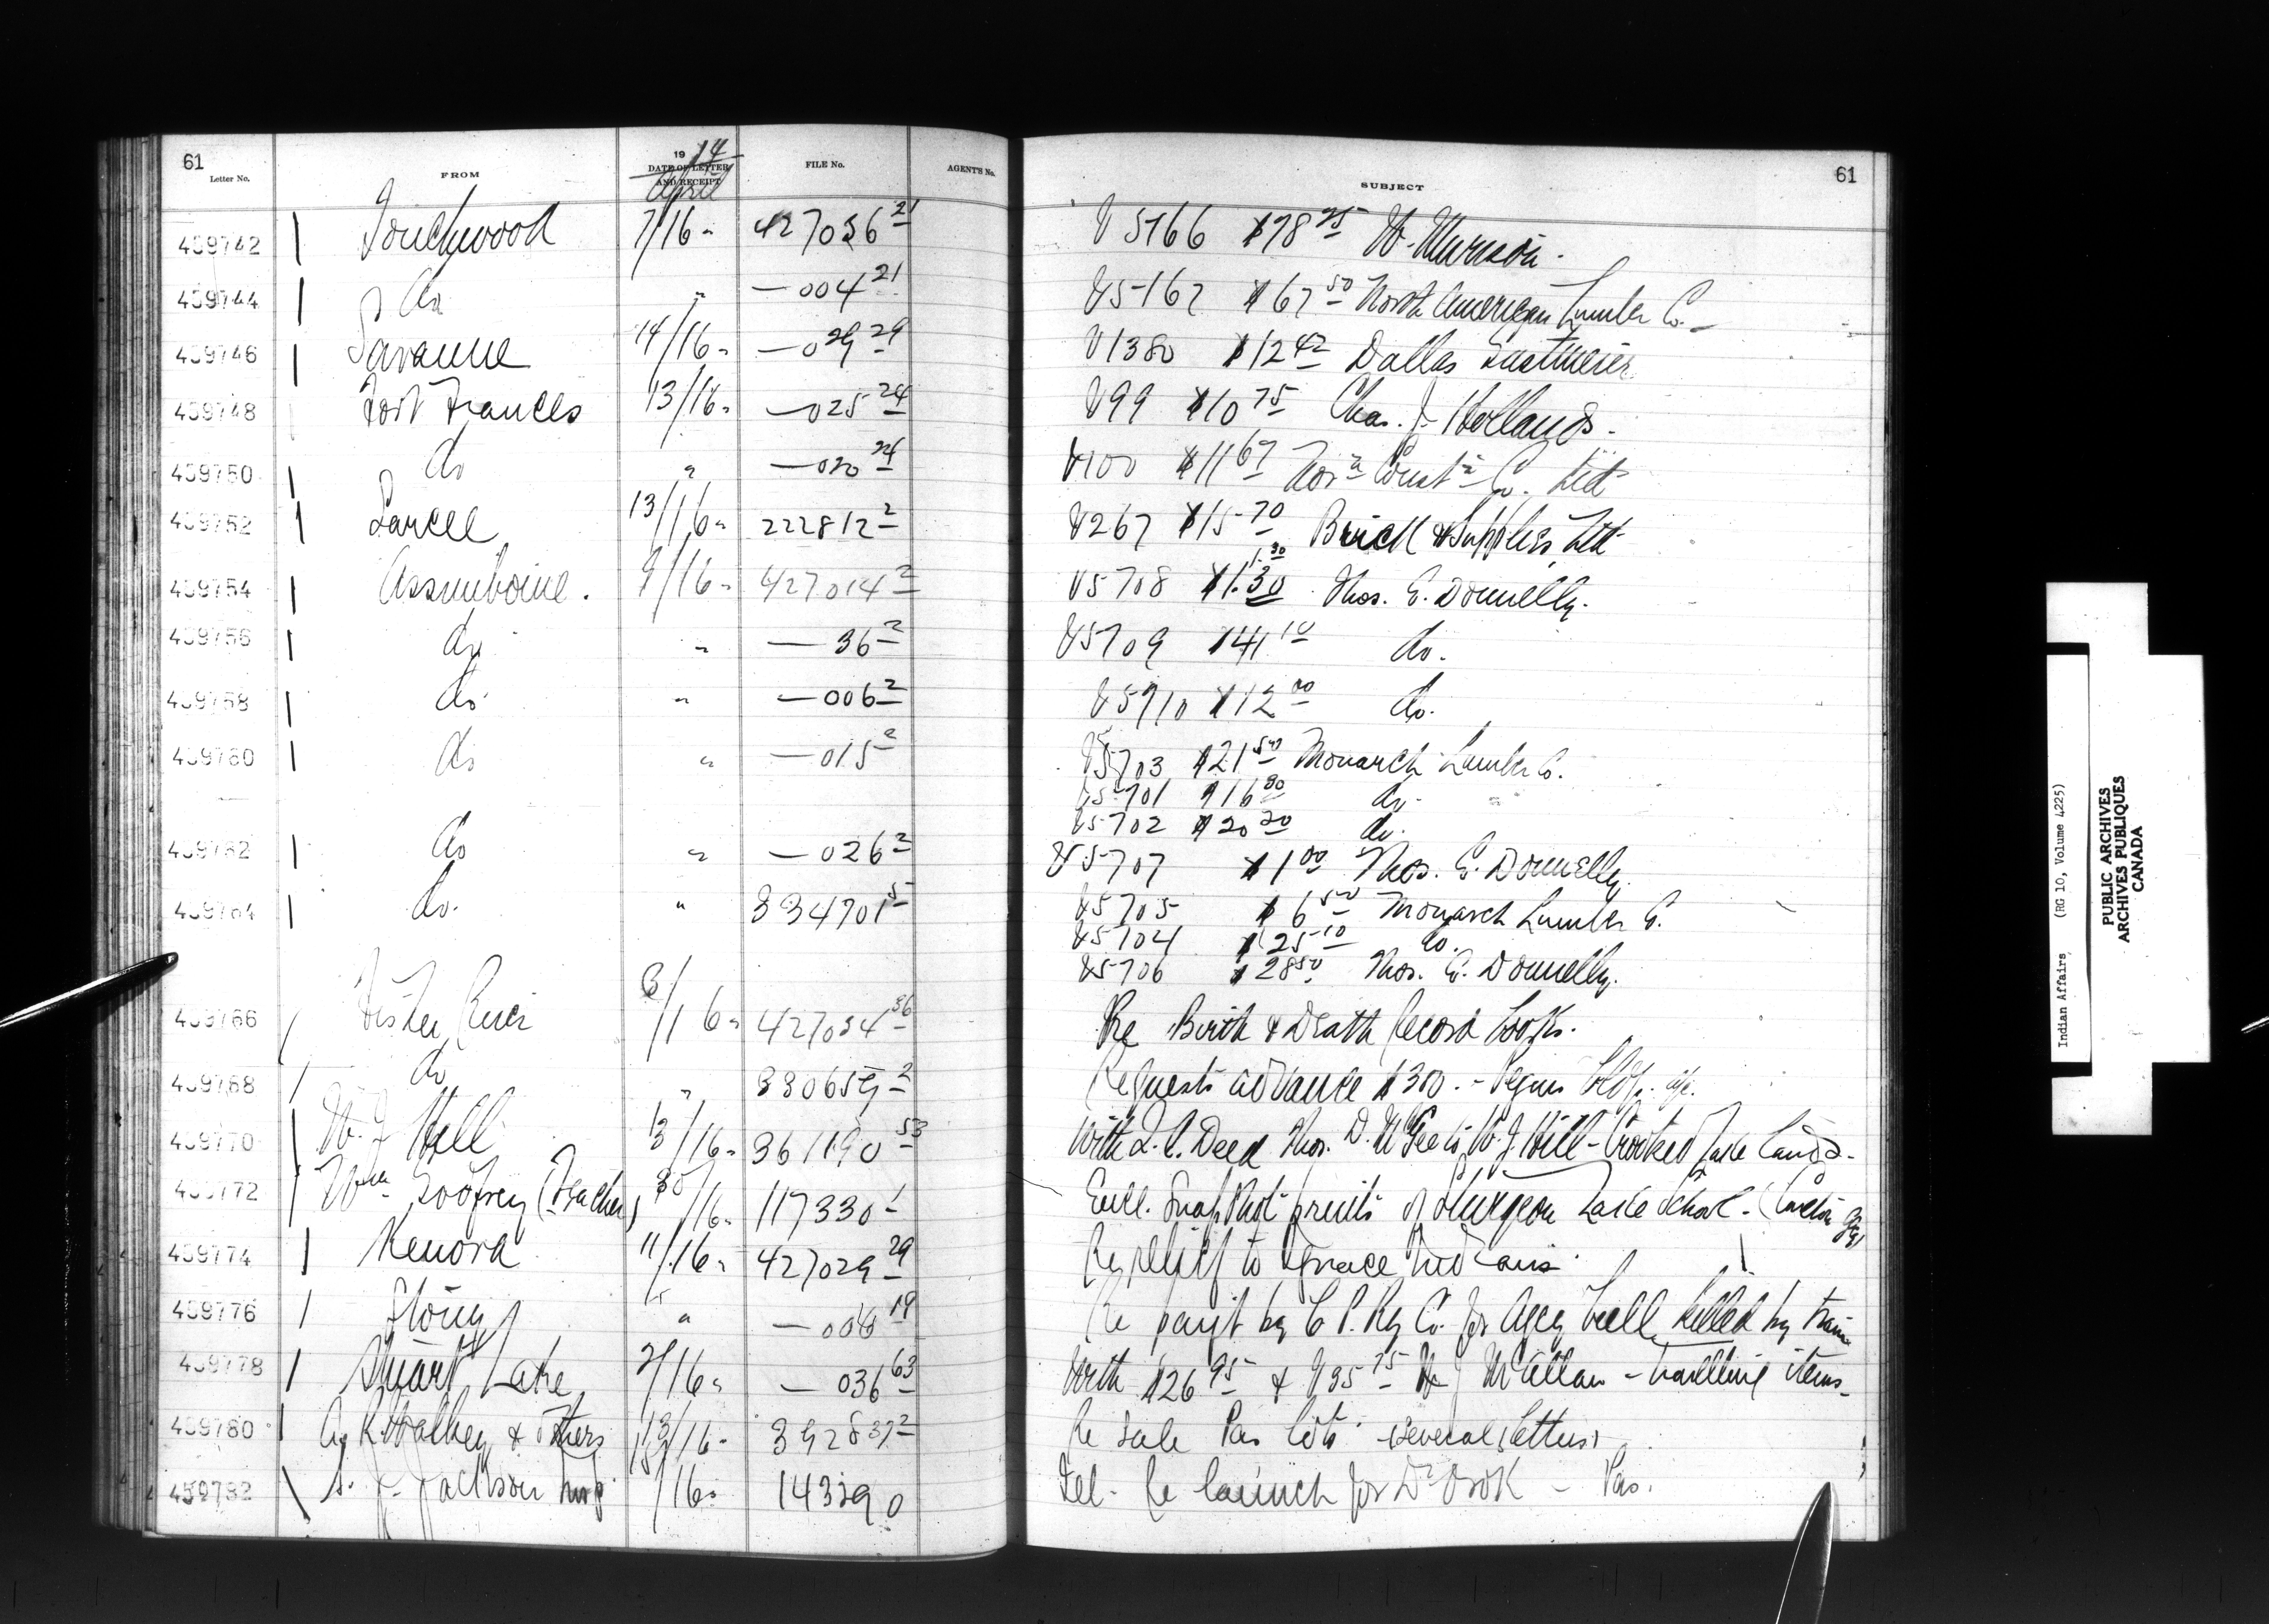 61
Letter No.
FROM
19 14
DATE OF LETTER
AND RECEIPT
April
FILE No.
AGENT'S No.
SUBJECT
61
459742 Touchwood 7/16 " 427056 21 V 5166 $78 75 W. Murison.
459744 do " — 004 21 V5167 $67 50 North American Lumber Co.
459746 Savanne 14/16 " — 029 29 V1380 $12 42 Dallas Eastmeier
459748 Fort Frances 13/16 " — 025 24 V99 $10 75 Chas. J. Hollands.
459750 do " — 020 24 V100 $11 67 Const Co. Ltd
459752 Sarcee 13/16 " 222812 2 V267 $15 70 Brick & Supplies Ltd
459754 Assiniboine. 9/16 " 427014 2 V5708 $1.30 1.30 Thos. E. Donnelly.
459756 do " — 36 2 V5709 $41 10 do.
459758 do " — 006 2 V5710 $12 00 do.
459760 do " — 015 2 V5703 $21 50 Monarch Lumber Co.
V5701 $16 80 do "
V5702 $20 20 do.
459762 do " — 026 2 V5707 $1 00 Thos. E. Donnelly.
459764 do. " 334701 5 V5705 $6 50 Monarch Lumber Co.
V5704 $25 10 do.
V5706 $28 50 Thos. E. Donnelly.
459766 Fisher River 8/16 " 427034 36 Re Birth & Death Record Books.
459768 do " 330659 2 Requests advance $300. - Peguis Bldg.
459770 W. J. Hill 13/16 " 361190 53 With Deed Thos. D. McGee to W. J. Hill - Crooked Lake Lands.
459772 Wm Godfrey (Teacher) /16 " 117330 1 Encl. Snap Shot prints of Sturgeon Lake School - (Carlton Agy)
459774 Kenora 11/16 " 427029 29 Re relief to Ignace Indians.
459776 Stony " — 006 19 Re paymt by C. P. Ry Co. for Agcy bull killed by train
459778 Stuart Lake 2/16 " — 036 63 With $26 95 & V35 75 W J McAllan - travelling items.
459780 A. K. Walkey & others 13/16 " 392837 2 Re Sale Pas lots. (several letters)
459782 S. J. Jackson Insp. /16 " 143390 Tel. Re launch for Dr Orok - Pas.
Indian Affairs (RG 10, Volume 4225)
PUBLIC ARCHIVES
ARCHIVES PUBLIQUES
CANADA